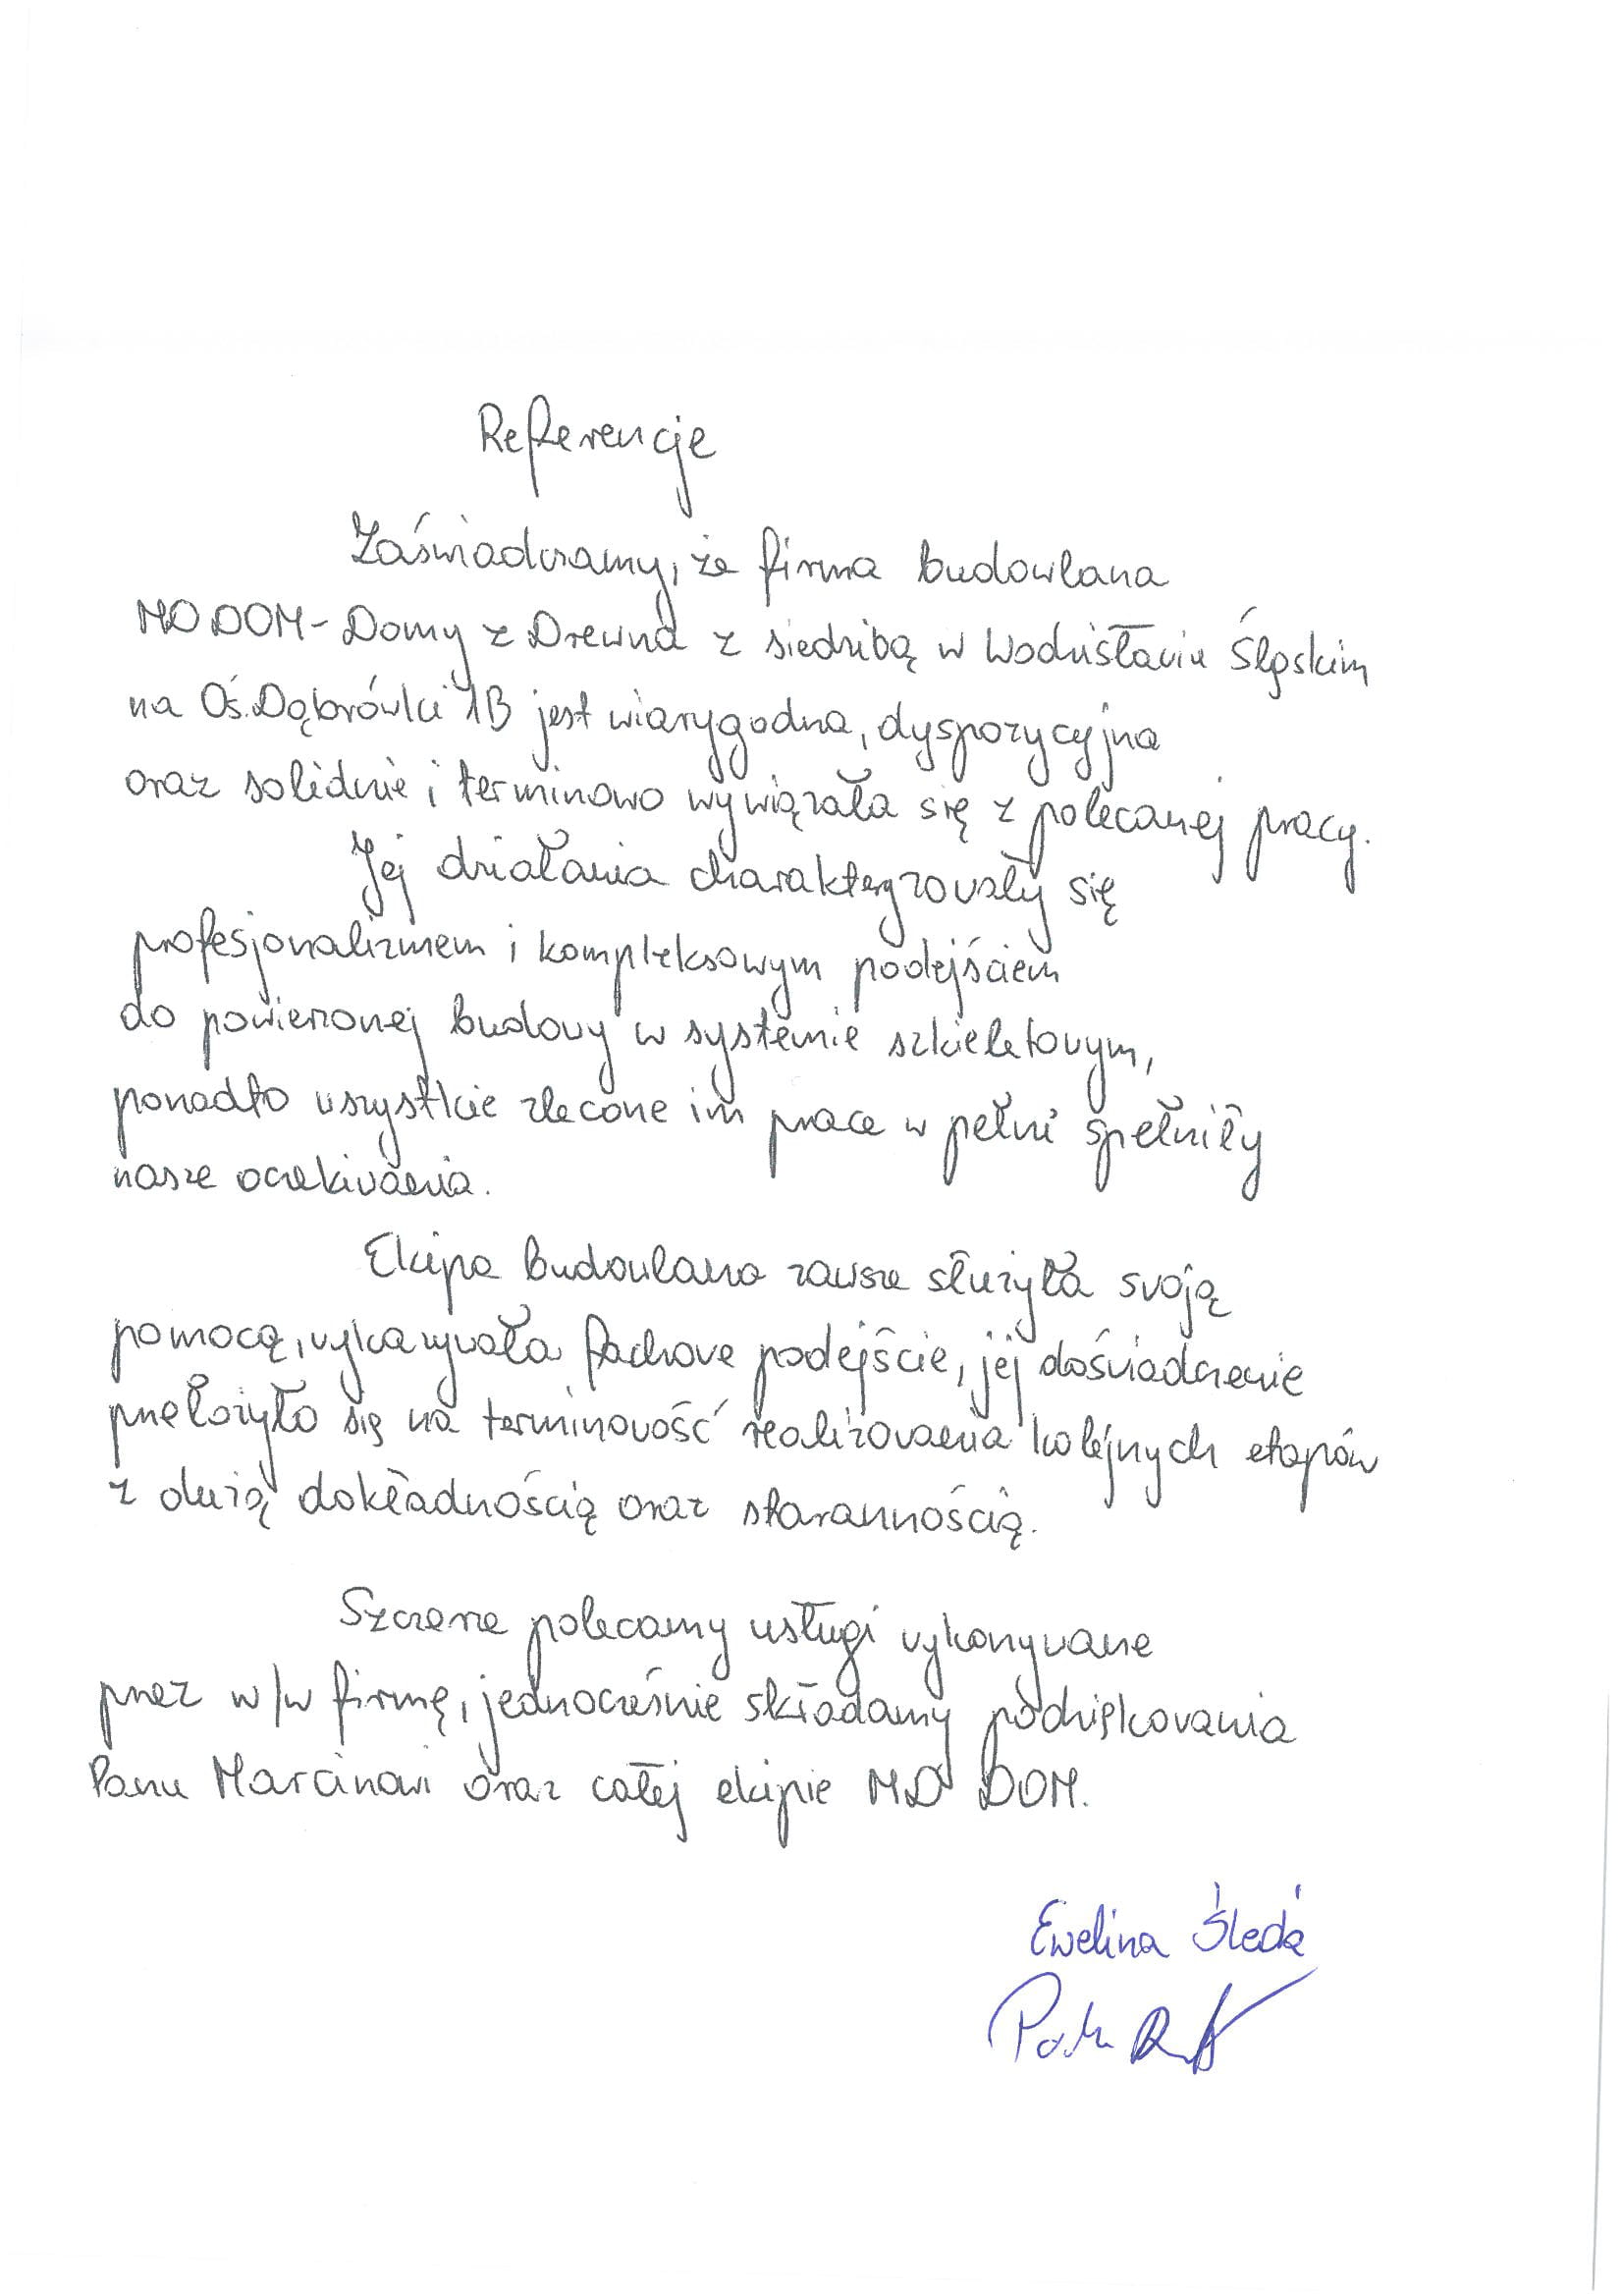 Referencje
Zaświadczamy, że firma budowlana
MD DOM - Domy z Drewna z siedzibą w Wodzisławiu Śląskim
na Oś. Dąbrówki 1B jest wiarygodna, dyspozycyjna
oraz solidnie i terminowo wywiązała się z polecanej pracy.
Jej działania charakteryzowały się
profesjonalizmem i kompleksowym podejściem
do powierzonej budowy w systemie szkieletowym,
ponadto wszystkie zlecone im prace w pełni spełniły
nasze oczekiwania.
Ekipa budowlana zawsze służyła swoją
pomocą, wykazywała fachowe podejście, jej doświadczenie
przełożyło się na terminowość realizowania kolejnych etapów
z dużą dokładnością oraz starannością.
Szczerze polecamy usługi wykonywane
przez w/w firmę, jednocześnie składamy podziękowania
Panu Marcinowi oraz całej ekipie MD DOM.
Ewelina